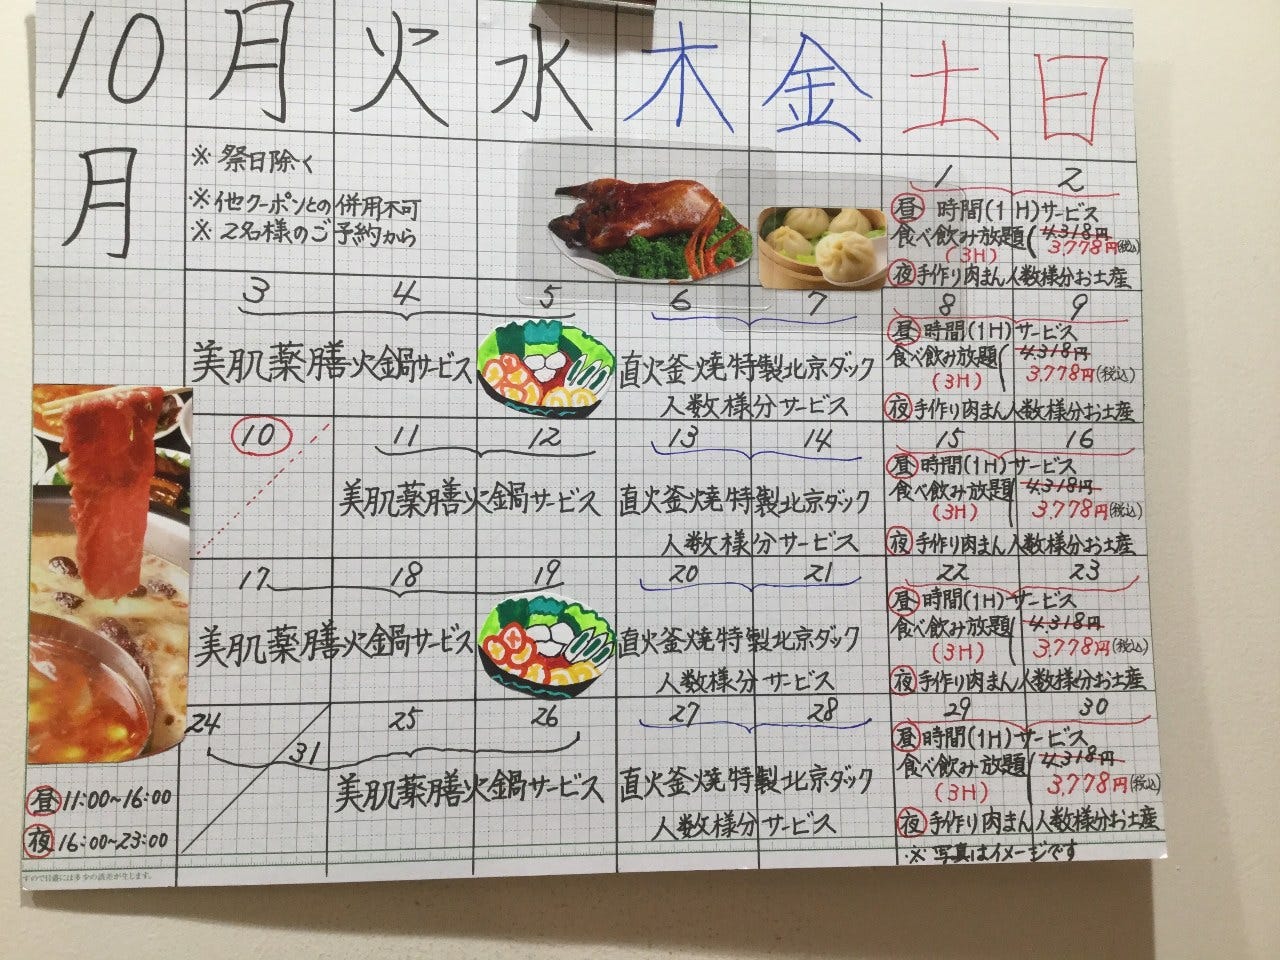 10 月 火 水 木 金 土 日
月
※ 祭日除く
※ 他クーポンとの併用不可
※ 2名様のご予約から
1 2
昼 時間(1H)サービス
食べ飲み放題 4,318円
(3H) 3,778円(税込)
夜 手作り肉まん人数様分お土産
3 4 5
美肌薬膳火鍋サービス
6 7
直火釜焼特製北京ダック
人数様分サービス
8 9
昼 時間(1H)サービス
食べ飲み放題 4,318円
(3H) 3,778円(税込)
夜 手作り肉まん人数様分お土産
10
11 12
美肌薬膳火鍋サービス
13 14
直火釜焼特製北京ダック
人数様分サービス
15 16
昼 時間(1H)サービス
食べ飲み放題 4,318円
(3H) 3,778円(税込)
夜 手作り肉まん人数様分お土産
17 18 19
美肌薬膳火鍋サービス
20 21
直火釜焼特製北京ダック
人数様分サービス
22 23
昼 時間(1H)サービス
食べ飲み放題 4,318円
(3H) 3,778円(税込)
夜 手作り肉まん人数様分お土産
24 31 25 26
美肌薬膳火鍋サービス
27 28
直火釜焼特製北京ダック
人数様分サービス
29 30
昼 時間(1H)サービス
食べ飲み放題 4,318円
(3H) 3,778円(税込)
夜 手作り肉まん人数様分お土産
※ 写真はイメージです
昼 11:00~16:00
夜 16:00~23:00
すので目盛には多少の誤差が生じます。